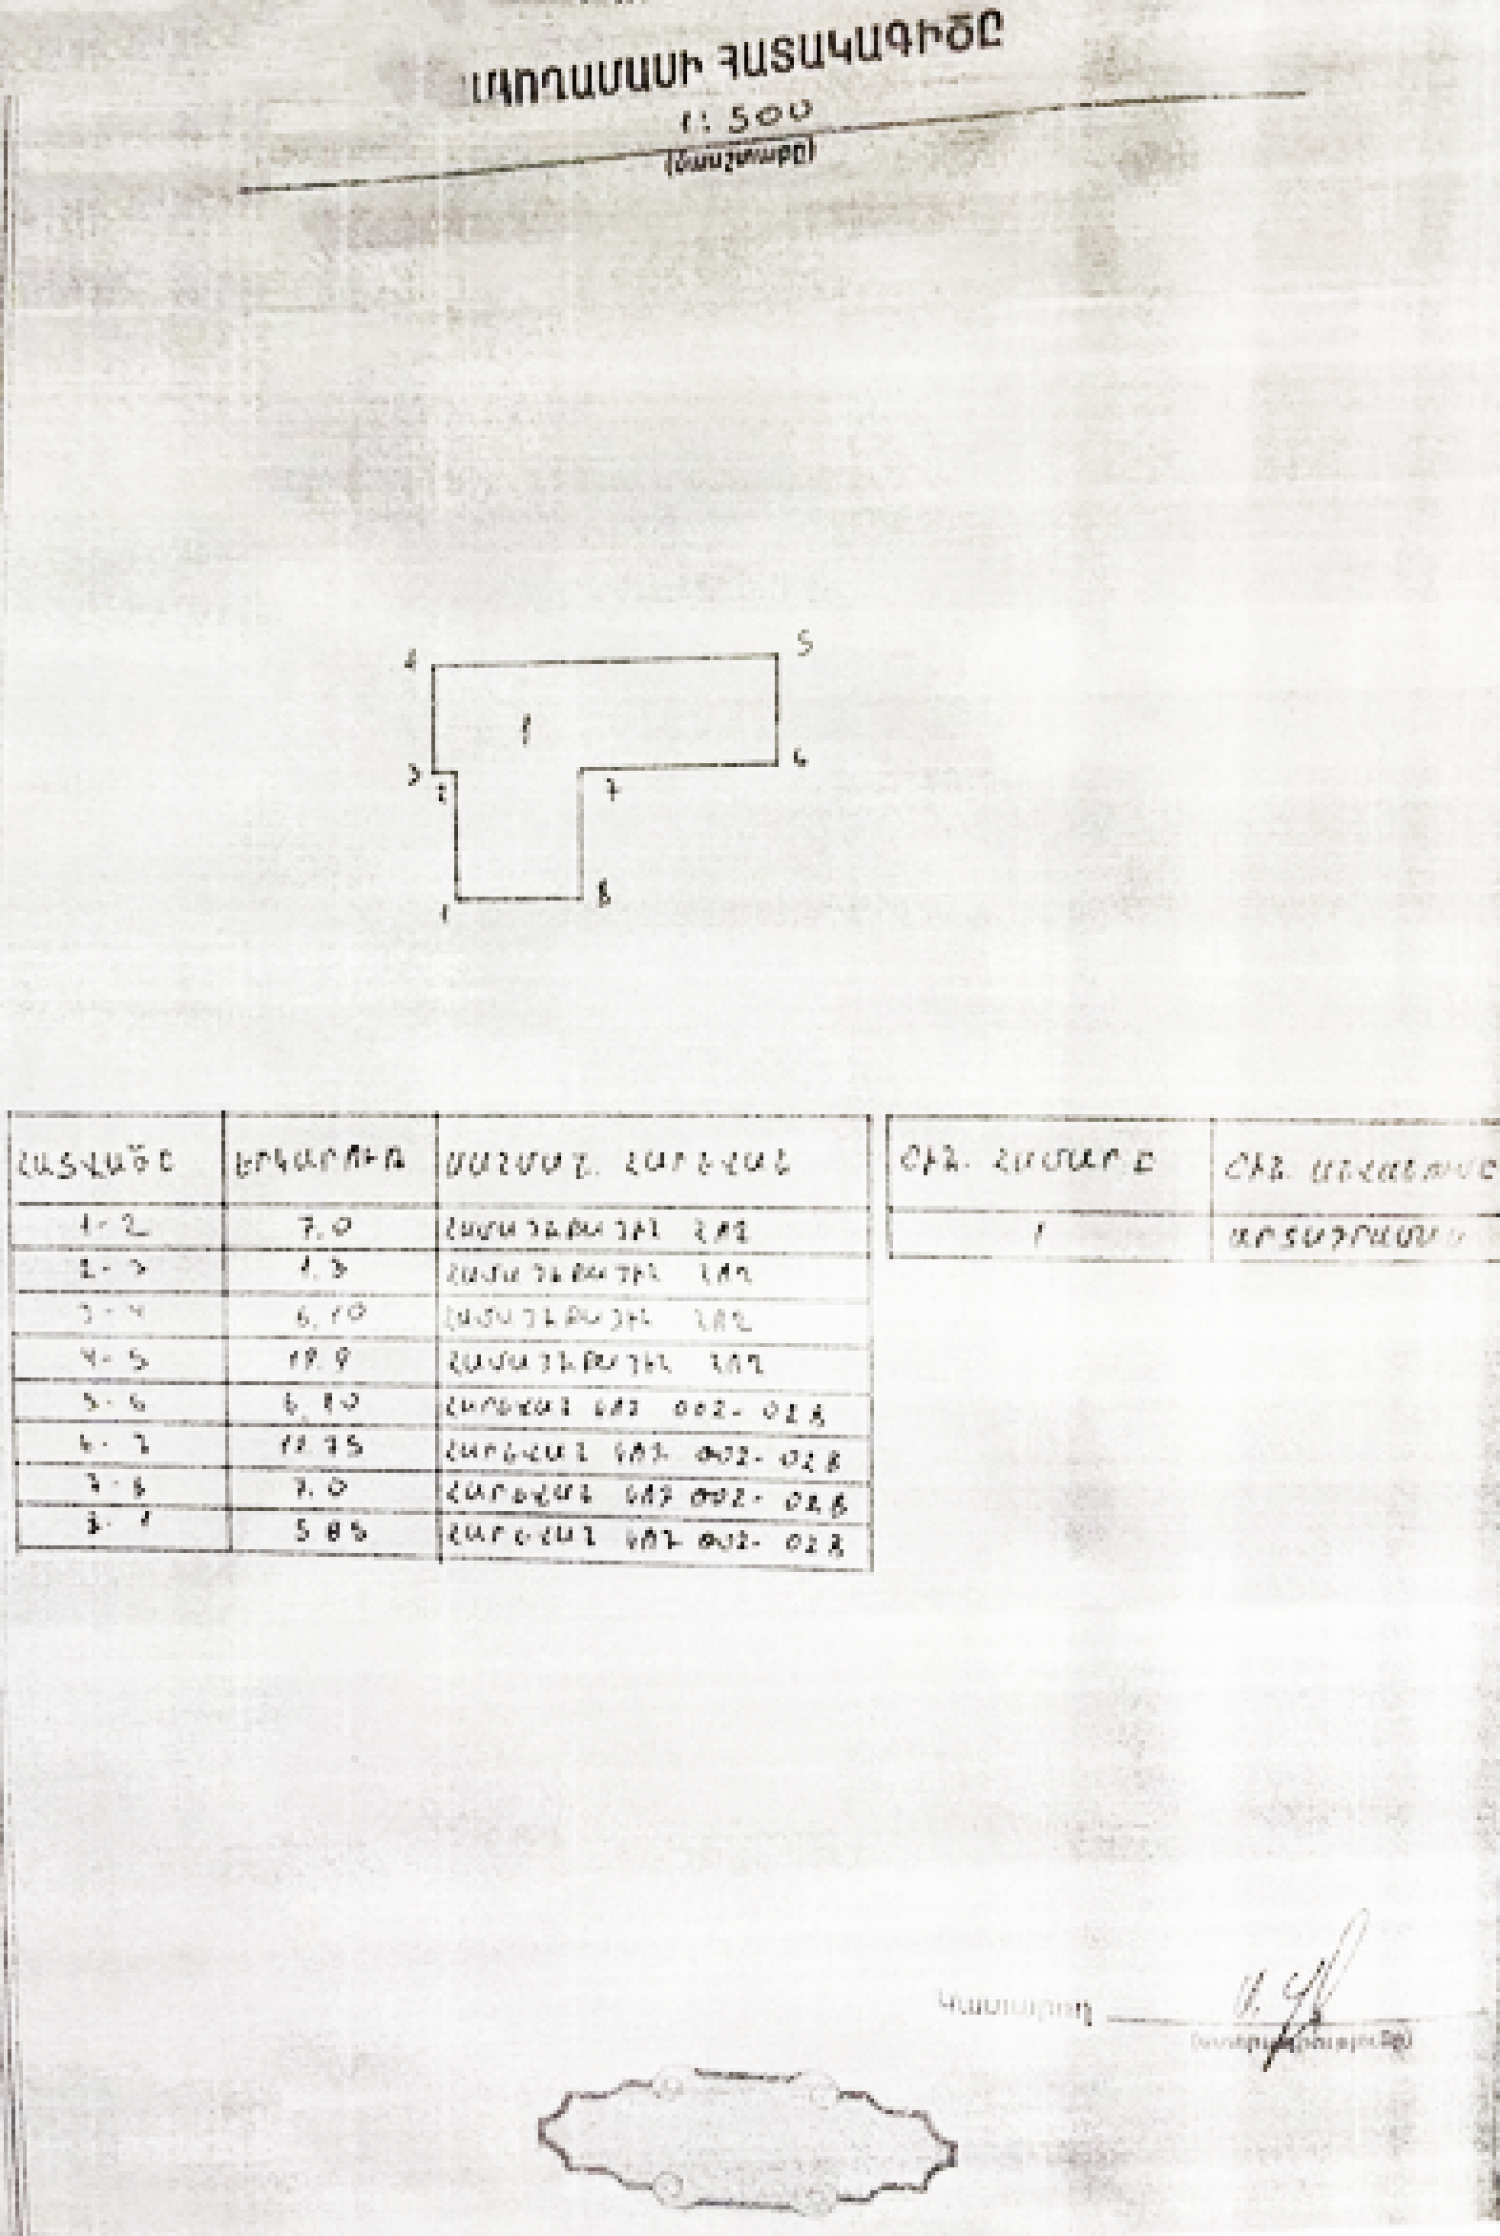 ՀՈՂԱՄԱՍԻ ՀԱՏԱԿԱԳԻԾԸ
1:500
(մասշտաբը)
4 5
1
3 2 7 6
1 8
ՀԱՏՎԱԾԸ ԵՐԿԱՐՈՒԹ ՍԱՀՄԱՆ. ՀԱՐԵՎԱՆ
1-2 7.0 ՀԱՄԱՅՆՔԱՅԻՆ ՀՈՂ
2-3 1.3 ՀԱՄԱՅՆՔԱՅԻՆ ՀՈՂ
3-4 6.10 ՀԱՄԱՅՆՔԱՅԻՆ ՀՈՂ
4-5 ՀԱՄԱՅՆՔԱՅԻՆ ՀՈՂ
5-6 6.10 ՀԱՐԵՎԱՆ ԿՈԴ 002-028
6-7 ՀԱՐԵՎԱՆ ԿՈԴ 002-028
7-8 7.0 ՀԱՐԵՎԱՆ ԿՈԴ 002-028
8-1 5.85 ՀԱՐԵՎԱՆ ԿՈԴ 002-028
ՇԻՆ. ՀԱՄԱՐԸ ՇԻՆ. ԱՆՎԱՆՈՒՄԸ
1
Կատարող
(ստորագրությունը)